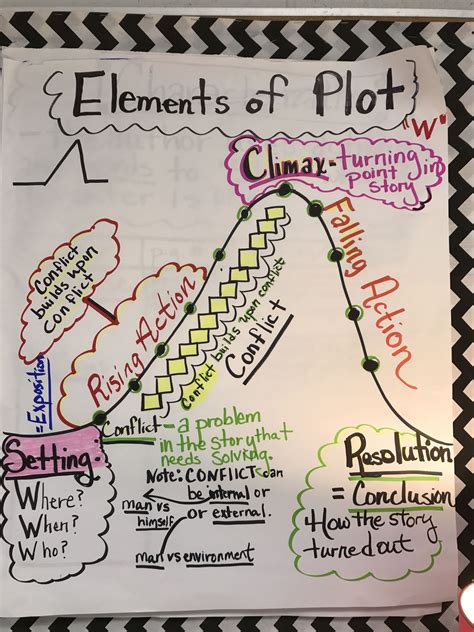 Elements of Plot
"W"
Climax - turning
point in
story
Conflict
builds upon
conflict
Rising Action
Falling Action
Conflict builds upon conflict
Conflict
= Exposition
Conflict - a problem
in the story that
needs solving.
Setting:
Where?
When?
Who?
Note: CONFlICT can
be internal or
or external.
man vs
himself
man vs environment
Resolution
= Conclusion
How the story
turned out